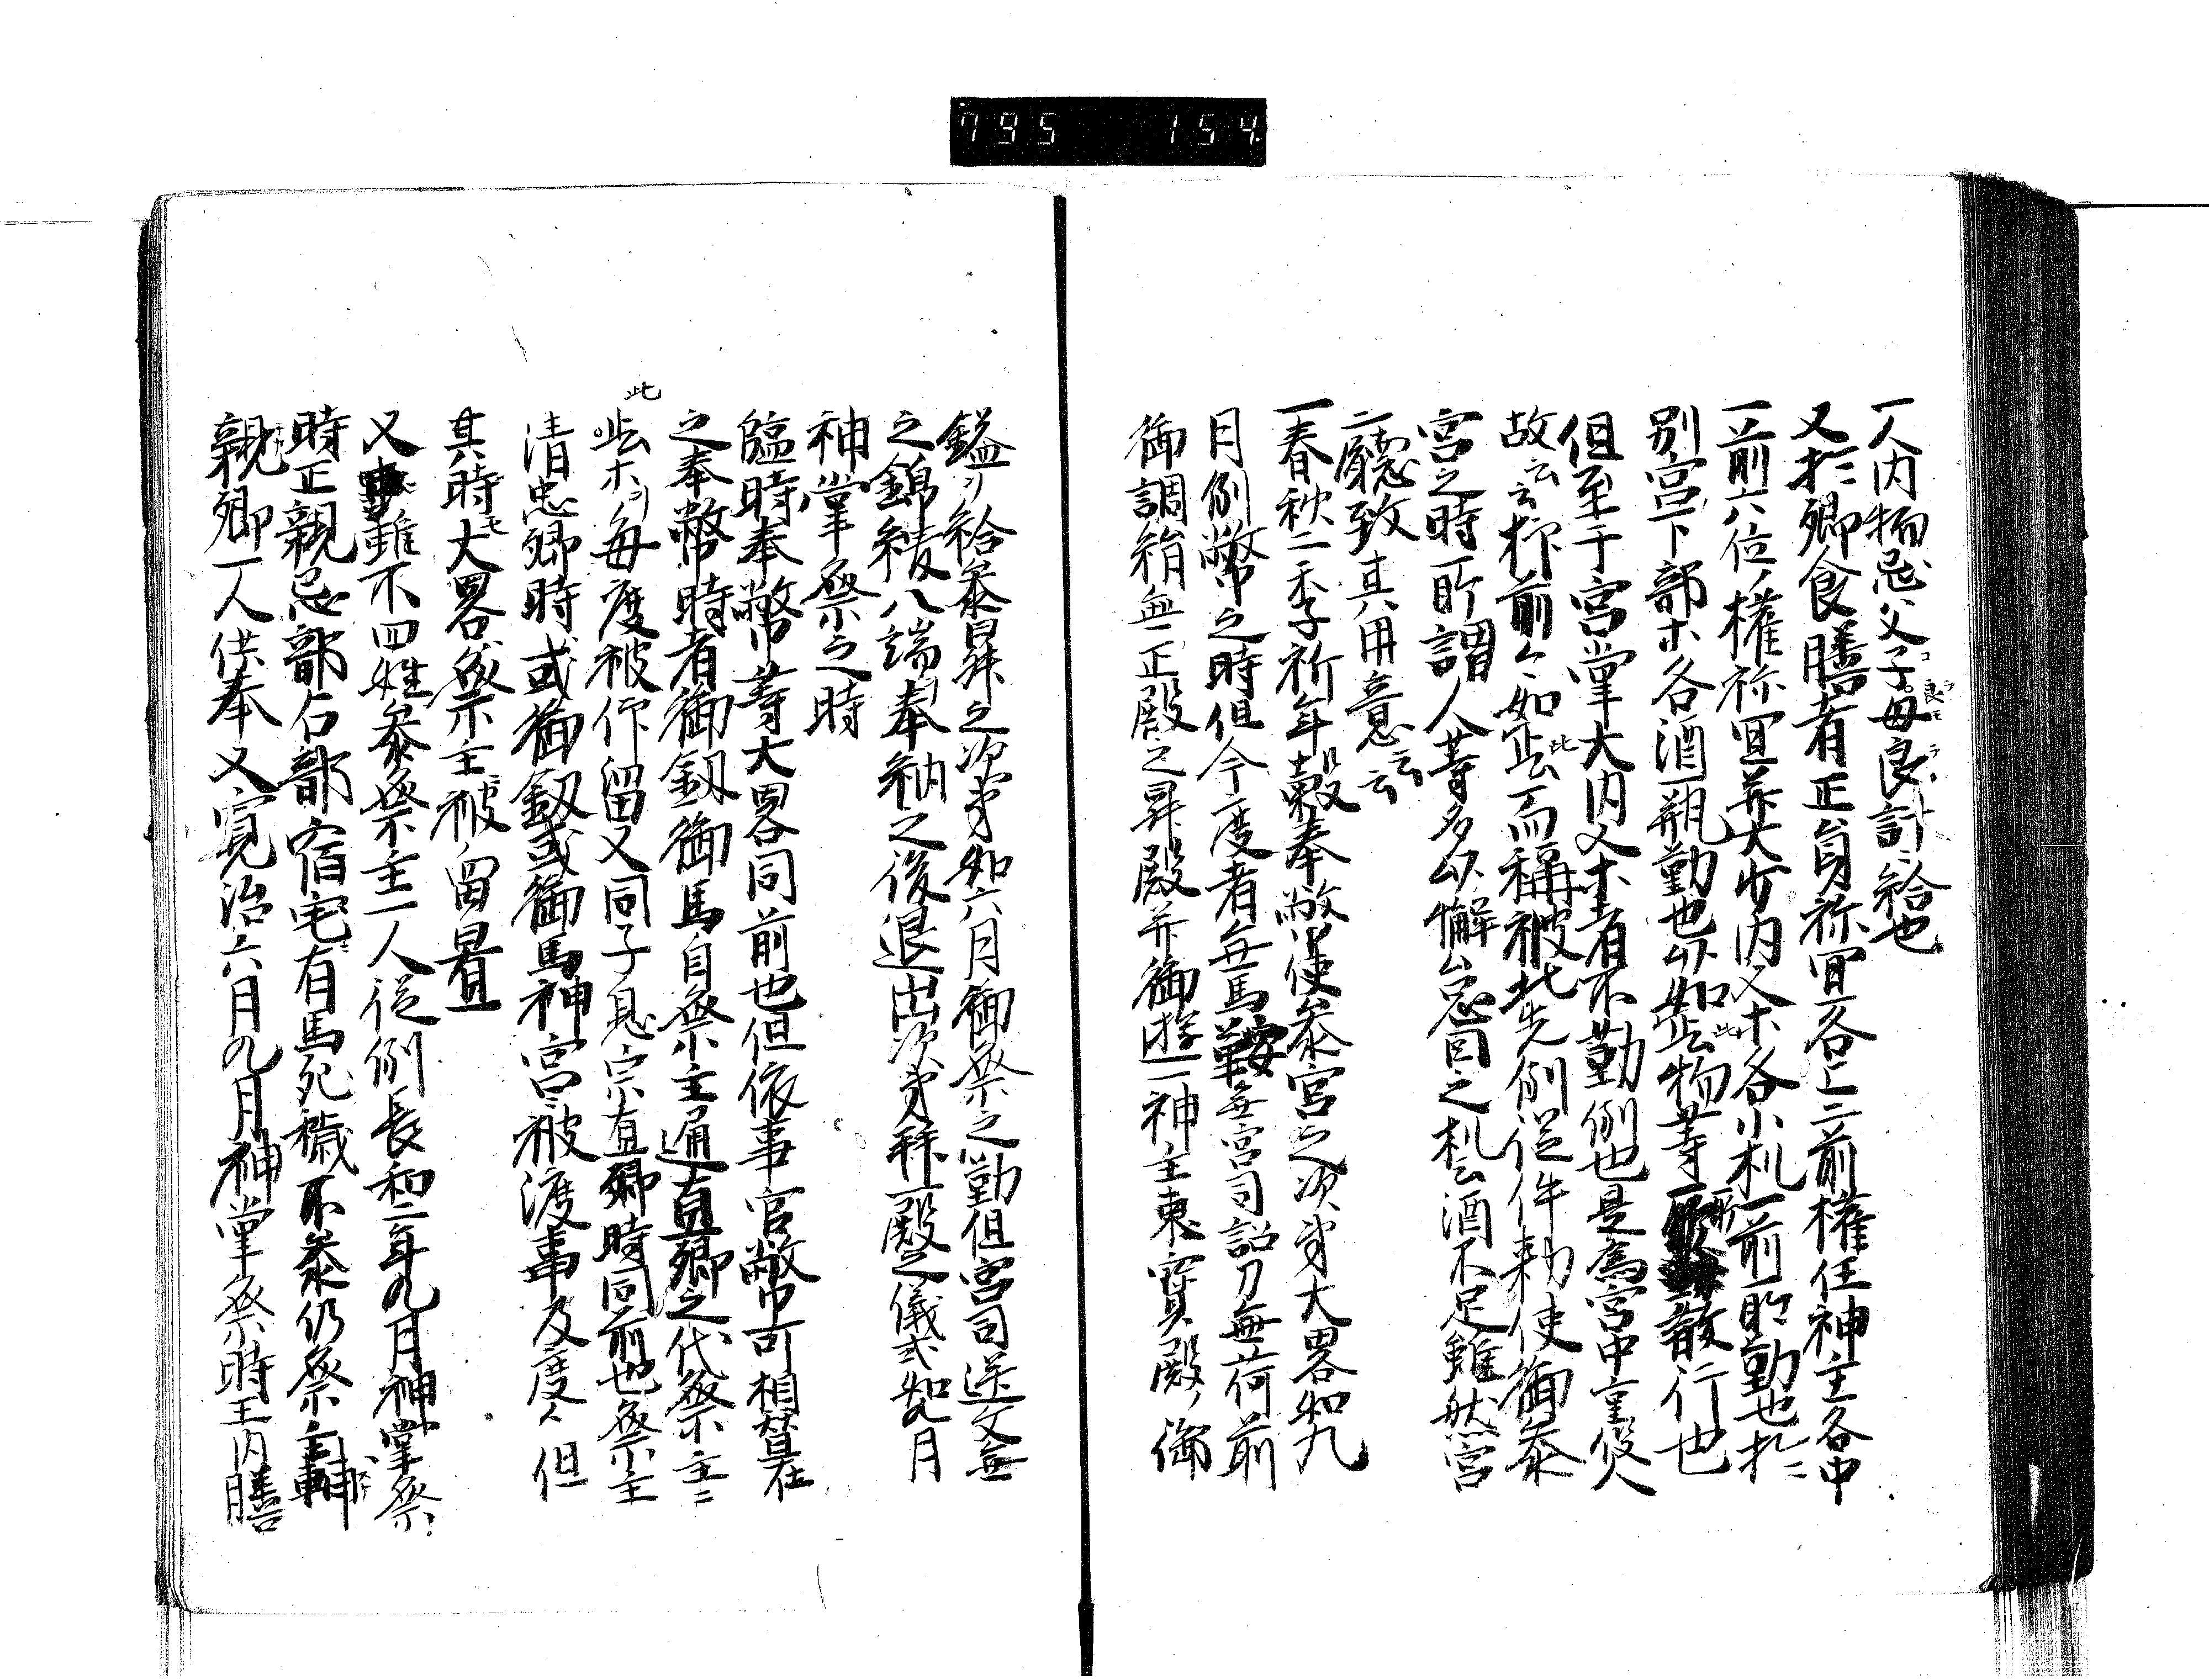 795 154
一人内物忌父子母良計給也
又於卿食膳者正員祢冝各二前権任神主各中
一前六位権祢冝并大少内又木各小机一前所勤也於
別宮下部木各酒一瓶勤也以如此物等所散行也
但至于宮掌大内又木者不勤例也是為宮中重役人
故云云抑前々如此而稱被此先例従件勅使御参
宮之時所謂人等多以懈怠因之机酒不足雖然宮
廳致其用意云云
一春秋二季祈年穀奉幣使参宮之次第大畧如九
月例幣之時但今度者無馬鞍無宮司詔刀無荷前
御調絹無正殿之昇殿并御遊一神主東寳殿御
鎰ヲ給参昇之次第如六月御祭之勤但宮司送文無
之錦綾八端奉納之後退出次第拜殿之儀式如九月
神掌祭之時
臨時奉幣等大畧同前也但依事官幣可相替在
之奉幣時者御釼御馬自祭主通直卿之代祭主ニ
此木ヲ毎度被仰留又同子息宗直卿時同前也祭主
清忠卿時或御釼或御馬神宮被渡事及度々但
其時モ大畧祭主被留置
又雖不四姓参祭主一人従例長和二年九月神掌祭
時正親忌部石部宿宅有馬死穢不参仍祭主輔
親卿一人供奉又寛治六月九月神掌祭時王内膳